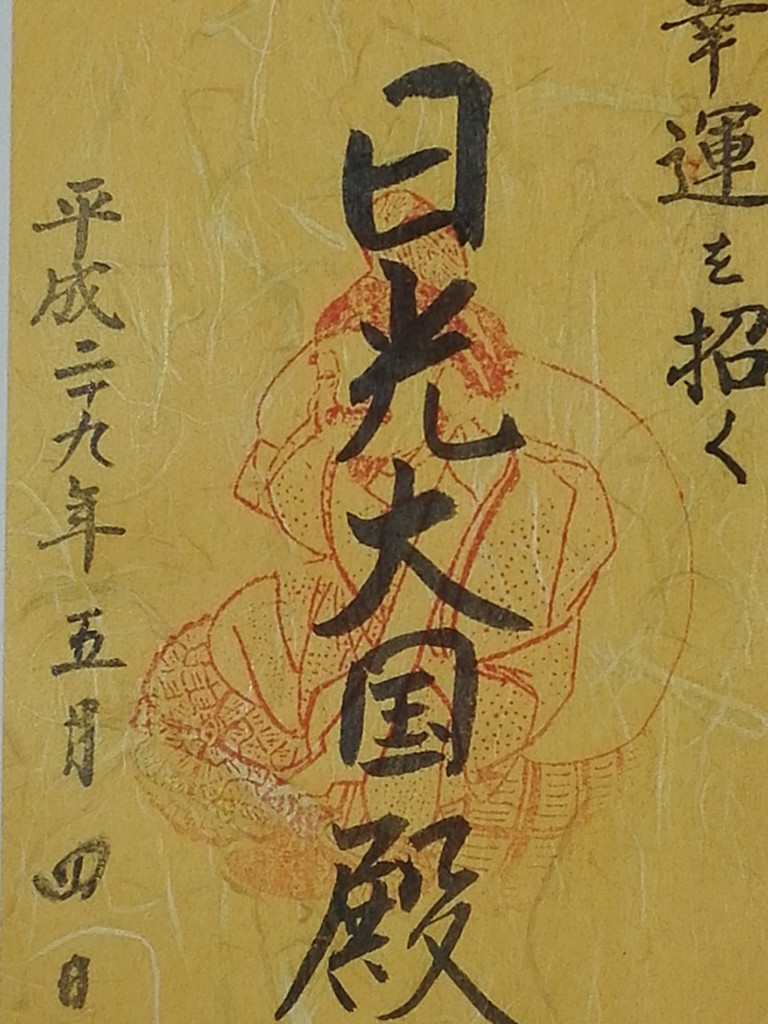 幸運を招く
日光大国殿
平成二十九年五月四日